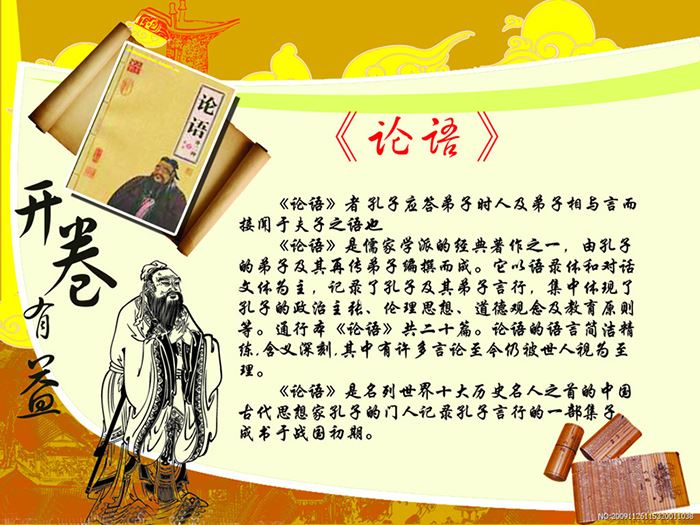 论语
开卷有益
《论语》
《论语》者孔子应答弟子时人及弟子相与言而
接闻于夫子之语也
《论语》是儒家学派的经典著作之一，由孔子
的弟子及其再传弟子编撰而成。它以语录体和对话
文体为主，记录了孔子及其弟子言行，集中体现了
孔子的政治主张、伦理思想、道德观念及教育原则
等。通行本《论语》共二十篇。论语的语言简洁精
练,含义深刻,其中有许多言论至今仍被世人视为至
理。
《论语》是名列世界十大历史名人之首的中国
古代思想家孔子的门人记录孔子言行的一部集子
成书于战国初期。